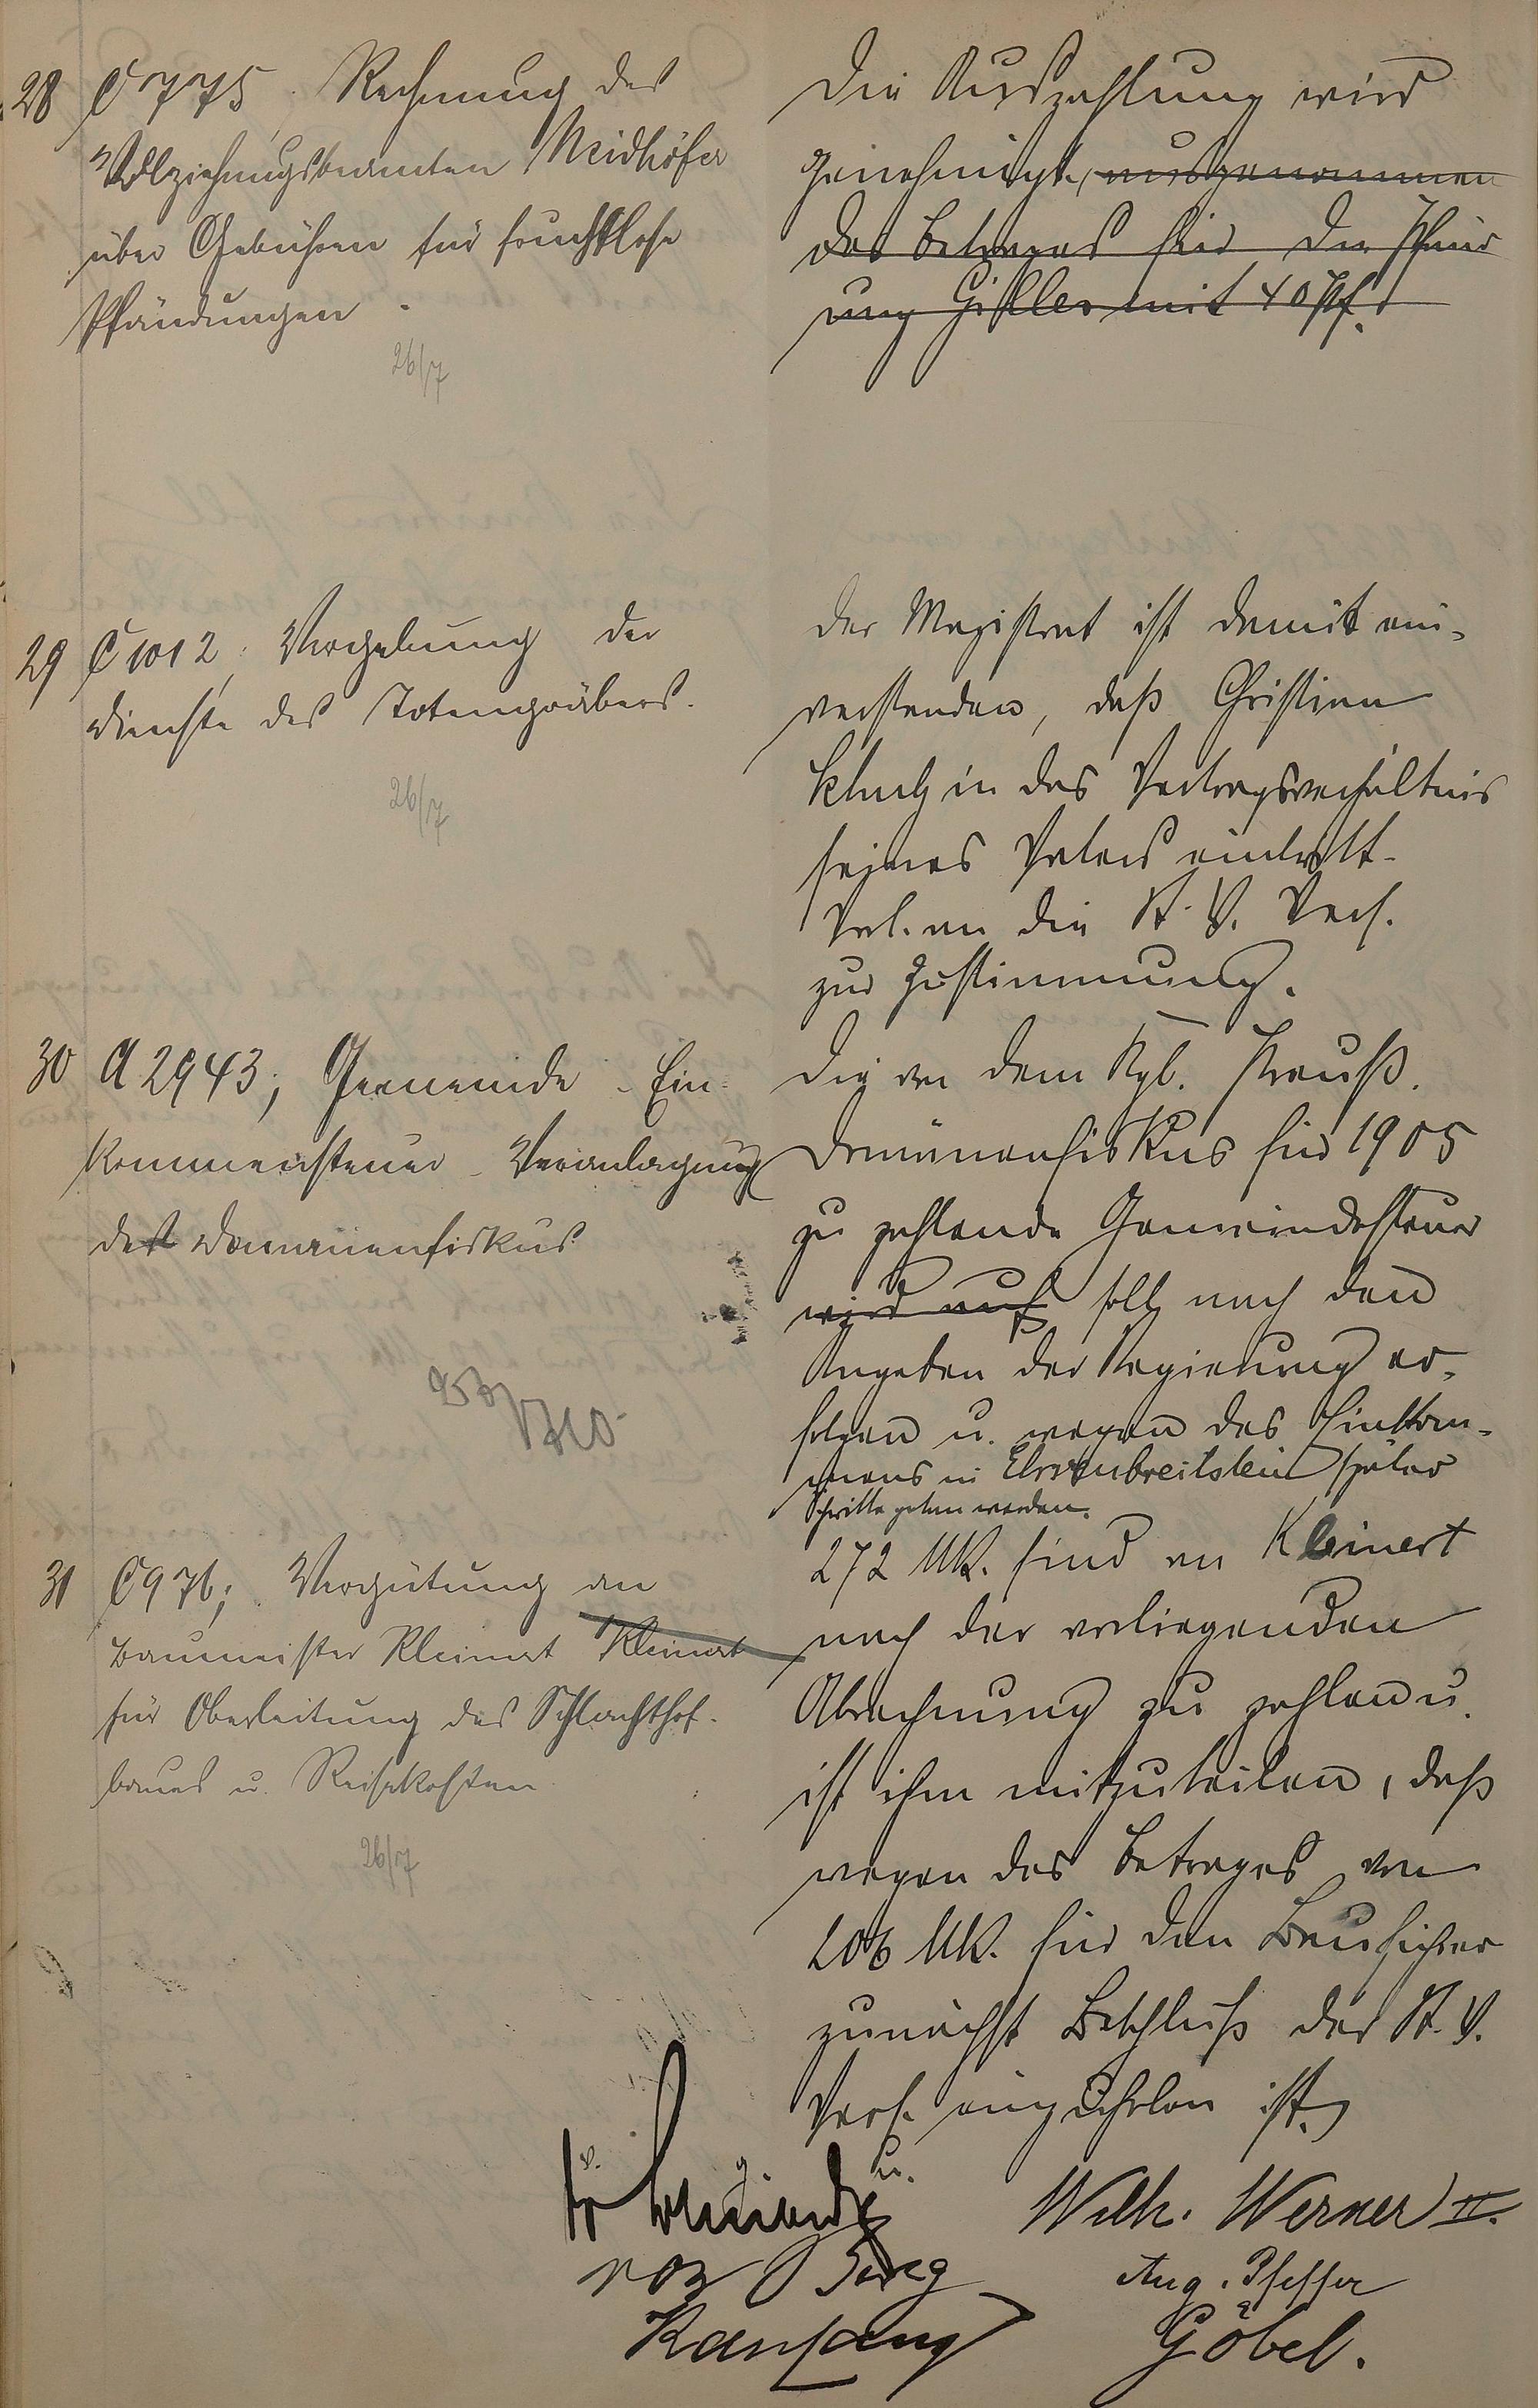 28 C 775. Rechnung des
Vollziehungsbeamten Neidhöfer
über Gebühren für fruchtlose
Pfändungen
26/7
Die Auszahlung wird
genehmigt, ausgenommen
des Betrages für die Pfänd
ung Giller mit 40 Pf.
29 C 1012, Vergebung der
Dienste des Totengräbers.
26/7
Der Magistrat ist damit ein-
verstanden, daß Christian
in das Vertragsverhältnis
seines Vaters eintritt.
Vorl. an die St. V. Vers.
zur Zustimmung.
30 A 2943; Gemeinde-Ein-
kommensteuer-Veranlagung
des Domänenfiskus
Die von dem Kgl. Preuß.
Domänenfiskus für 1905
zu zahlende Gemeindesteuer
wird auf soll nach den
Angaben der Regierung er-
folgen u. wegen des Einkom-
mens in Ehrenbreitstein später
Schritte gethan werden.
31 C 976; Vergütung an
Baumeister Kleinert Kleinert
für Oberleitung des Schlachthof-
baues u. Reisekosten
26/7
272 Mk. sind an Kleinert
nach der vorliegenden
Abrechnung zu zahlen u.
ist ihm mitzuteilen, daß
wegen des Betrages von
206 Mk. für den Bauführer
zunächst Beschluß der St. V.
Vers. einzuholen ist.
v. g. u.
Wilh. Werner II.
von Berg
Aug. Pfeffer
Göbel.